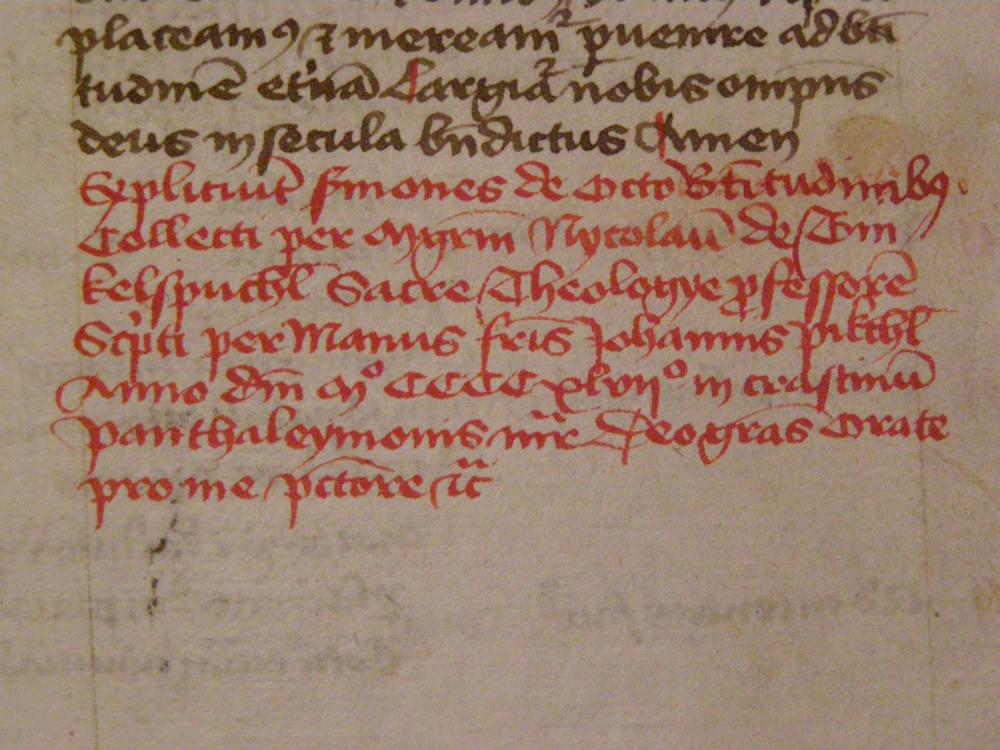 placeamꝰ ⁊ mereamr̄ ꝑuenire ad bt̄i
tudinē et̓nā Largiat̄ nobis om̄pn̄s
deus in secula bn̄dictus Amen
Expliciūt s̓mones de Octo Bt̄itudinibꝰ.
Collecti per Mgrm̄ Nycolaū de Din
kelspuchl̄ Sacre Theologye ꝓfessorē
Sc̓pti per Manus fr̄is Johannis pikchl̄
Anno dn̄i Mº CCCC xlviiº in crastinū
panthaleymonis mr̄is Deo gr̄as Orate
pro me pctōre ⁊c̄